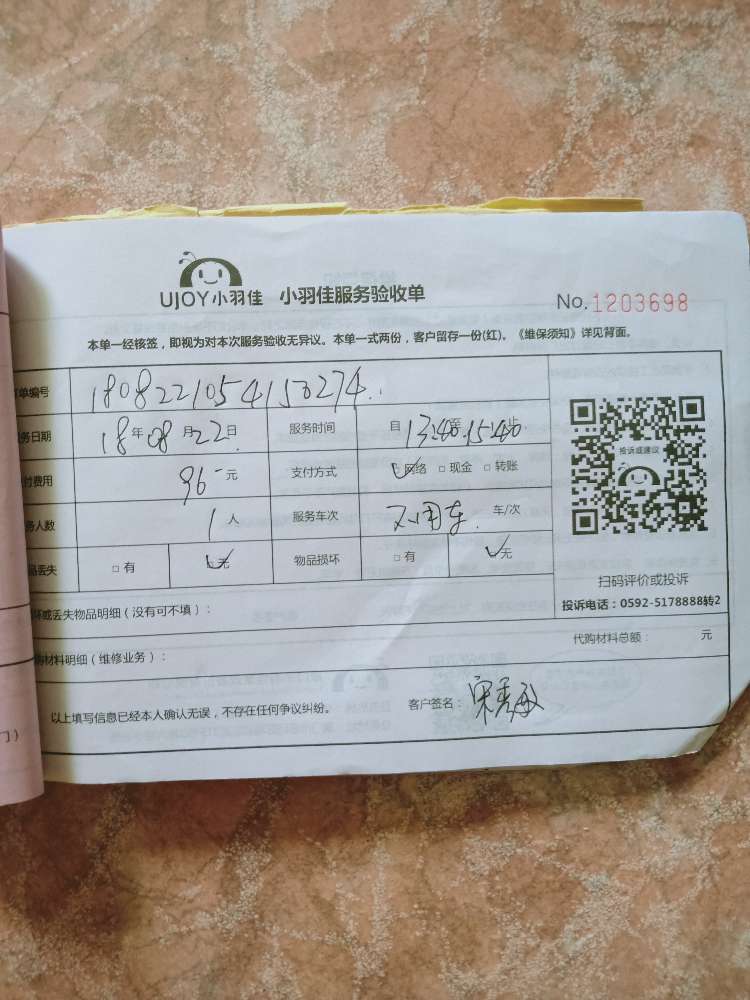 UJOY小羽佳 小羽佳服务验收单
No.1203698
本单一经核签，即视为对本次服务验收无异议。本单一式两份，客户留存一份(红)。《维保须知》详见背面。
单编号 180822105415 274
务日期 18年08月22日 服务时间 自13:40至15:40止
付费用 96元 支付方式 网络 □现金 □转账
投诉或建议
务人数 1人 服务车次 不用车 车/次
品丢失 □有 无 物品损坏 □有 无
扫码评价或投诉
投诉电话：0592-5178888转2
坏或丢失物品明细（没有可不填）：
代购材料总额： 元
购材料明细（维修业务）：
以上填写信息已经本人确认无误，不存在任何争议纠纷。 客户签名：宋秀敏
门）